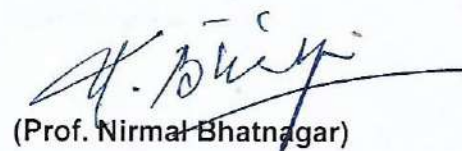 (Prof. Nirmal Bhatnagar)